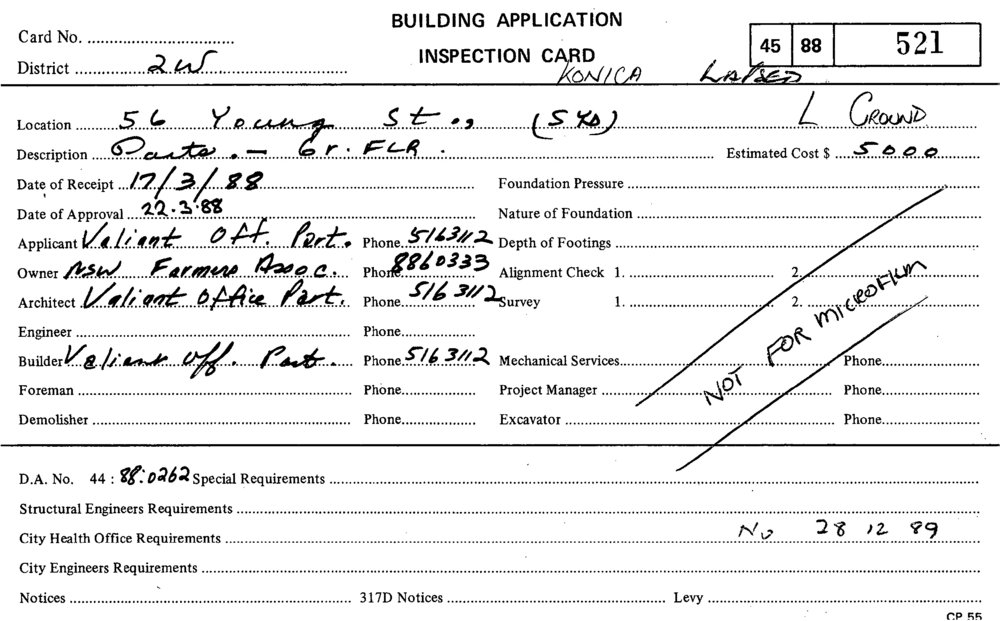 BUILDING APPLICATION
Card No.
INSPECTION CARD
45 88 521
District 2W
KONICA LAPSED
Location 56 Young St., (SYD) L GROUND
Description Parts. - Gr. FLR. Estimated Cost $ 5000
Date of Receipt 17/3/88 Foundation Pressure
Date of Approval 22.3.88 Nature of Foundation
Applicant Valiant Off. Part. Phone 5163112 Depth of Footings
Owner NSW Farmers Assoc. Phone 8860333 Alignment Check 1. 2.
Architect Valiant Office Part. Phone 5163112 Survey 1. 2.
NOT FOR MICROFILM
Engineer Phone
Builder Valiant Off. Part. Phone 5163112 Mechanical Services Phone
Foreman Phone Project Manager Phone
Demolisher Phone Excavator Phone
D.A. No. 44 : 88:0262 Special Requirements
Structural Engineers Requirements
City Health Office Requirements No 28 12 89
City Engineers Requirements
Notices 317D Notices Levy
CP 55